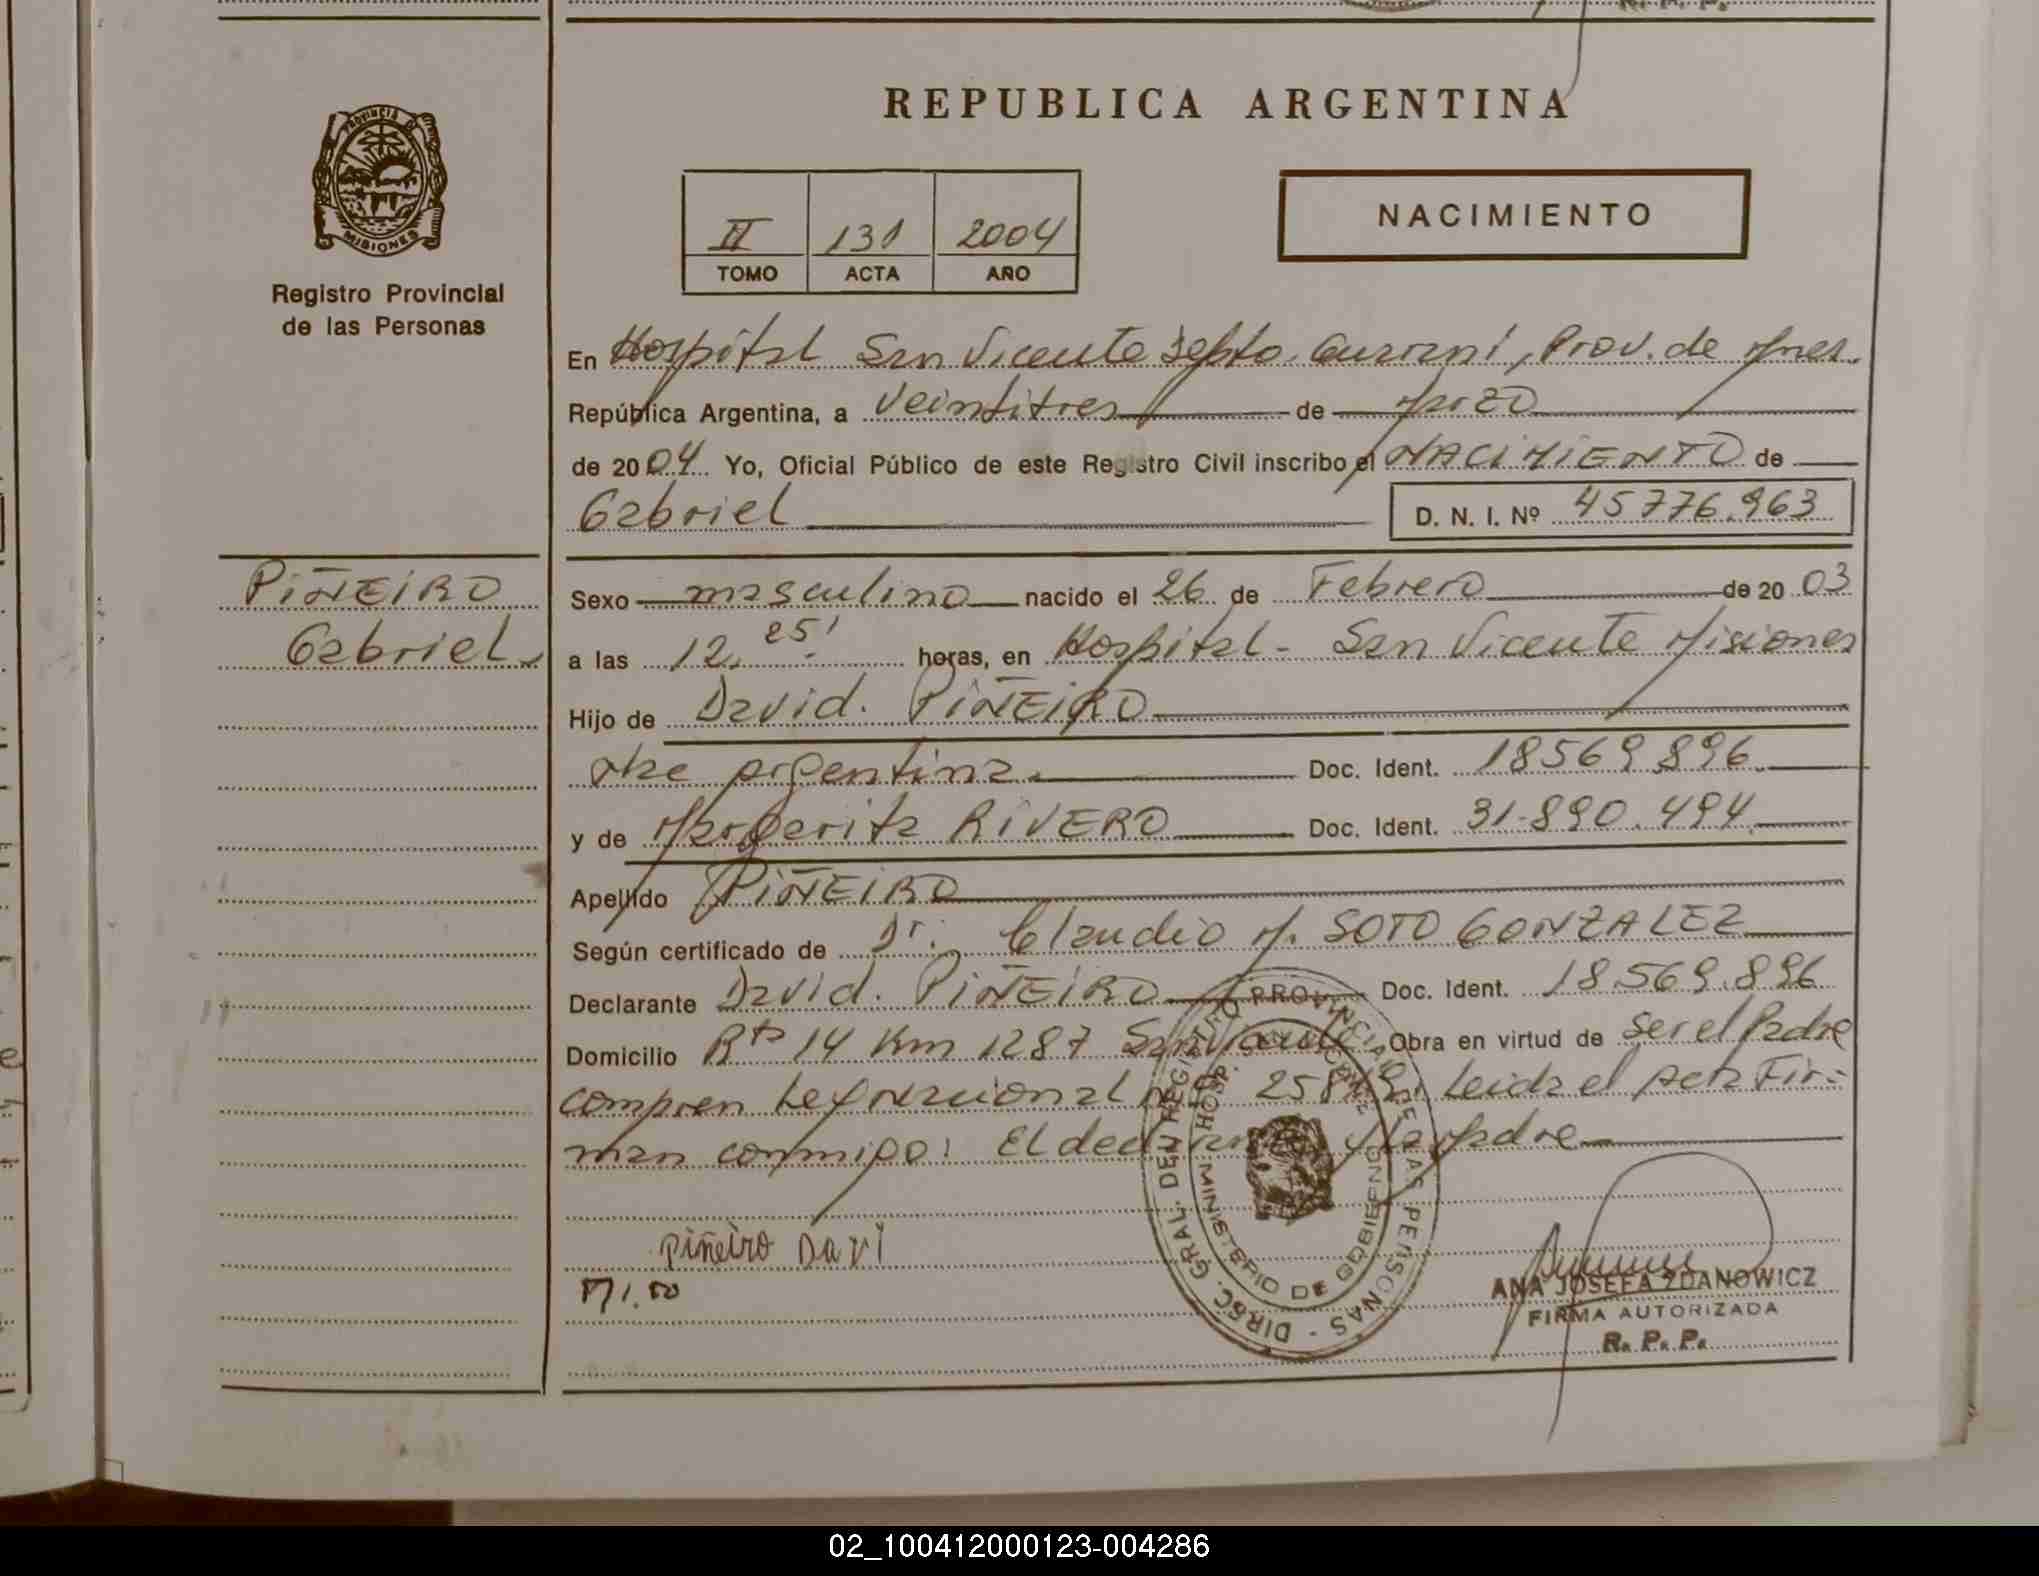 R. P. P.
REPUBLICA ARGENTINA
PROVINCIA D
MISIONES
Registro Provincial
de las Personas
II 131 2004
TOMO ACTA AÑO
NACIMIENTO
En Hospital San Vicente Depto. Guarani, Prov. de Mnes.
República Argentina, a Veintitres de Marzo
de 2004 Yo, Oficial Público de este Registro Civil inscribo el NACIMIENTO de
Gabriel D. N. I. Nº 45776.963
PIÑEIRO
Gabriel
Sexo masculino nacido el 26 de Febrero de 2003
a las 12,25' horas, en Hospital - San Vicente Misiones
Hijo de David. PIÑEIRO
Nac argentina. Doc. Ident. 18569896
y de Margarita RIVERO Doc. Ident. 31.890.494
Apellido PIÑEIRO
Según certificado de Dr. Claudio M. SOTO GONZALEZ
Declarante David. PIÑEIRO Doc. Ident. 18.569.896
Domicilio Rta 14 Km 1287 San Vicente Obra en virtud de ser el Padre
Leida el acta Fir=
man conmigo: El declarante y la Madre
Piñeiro Davi
DIREC. GRAL. DEL REGISTRO PROVINCIAL DE LAS PERSONAS
MINISTERIO DE GOBIERNO
HOSP. SAN VICENTE
ANA JOSEFA ZDANOWICZ
FIRMA AUTORIZADA
R. P. P.
02_100412000123-004286